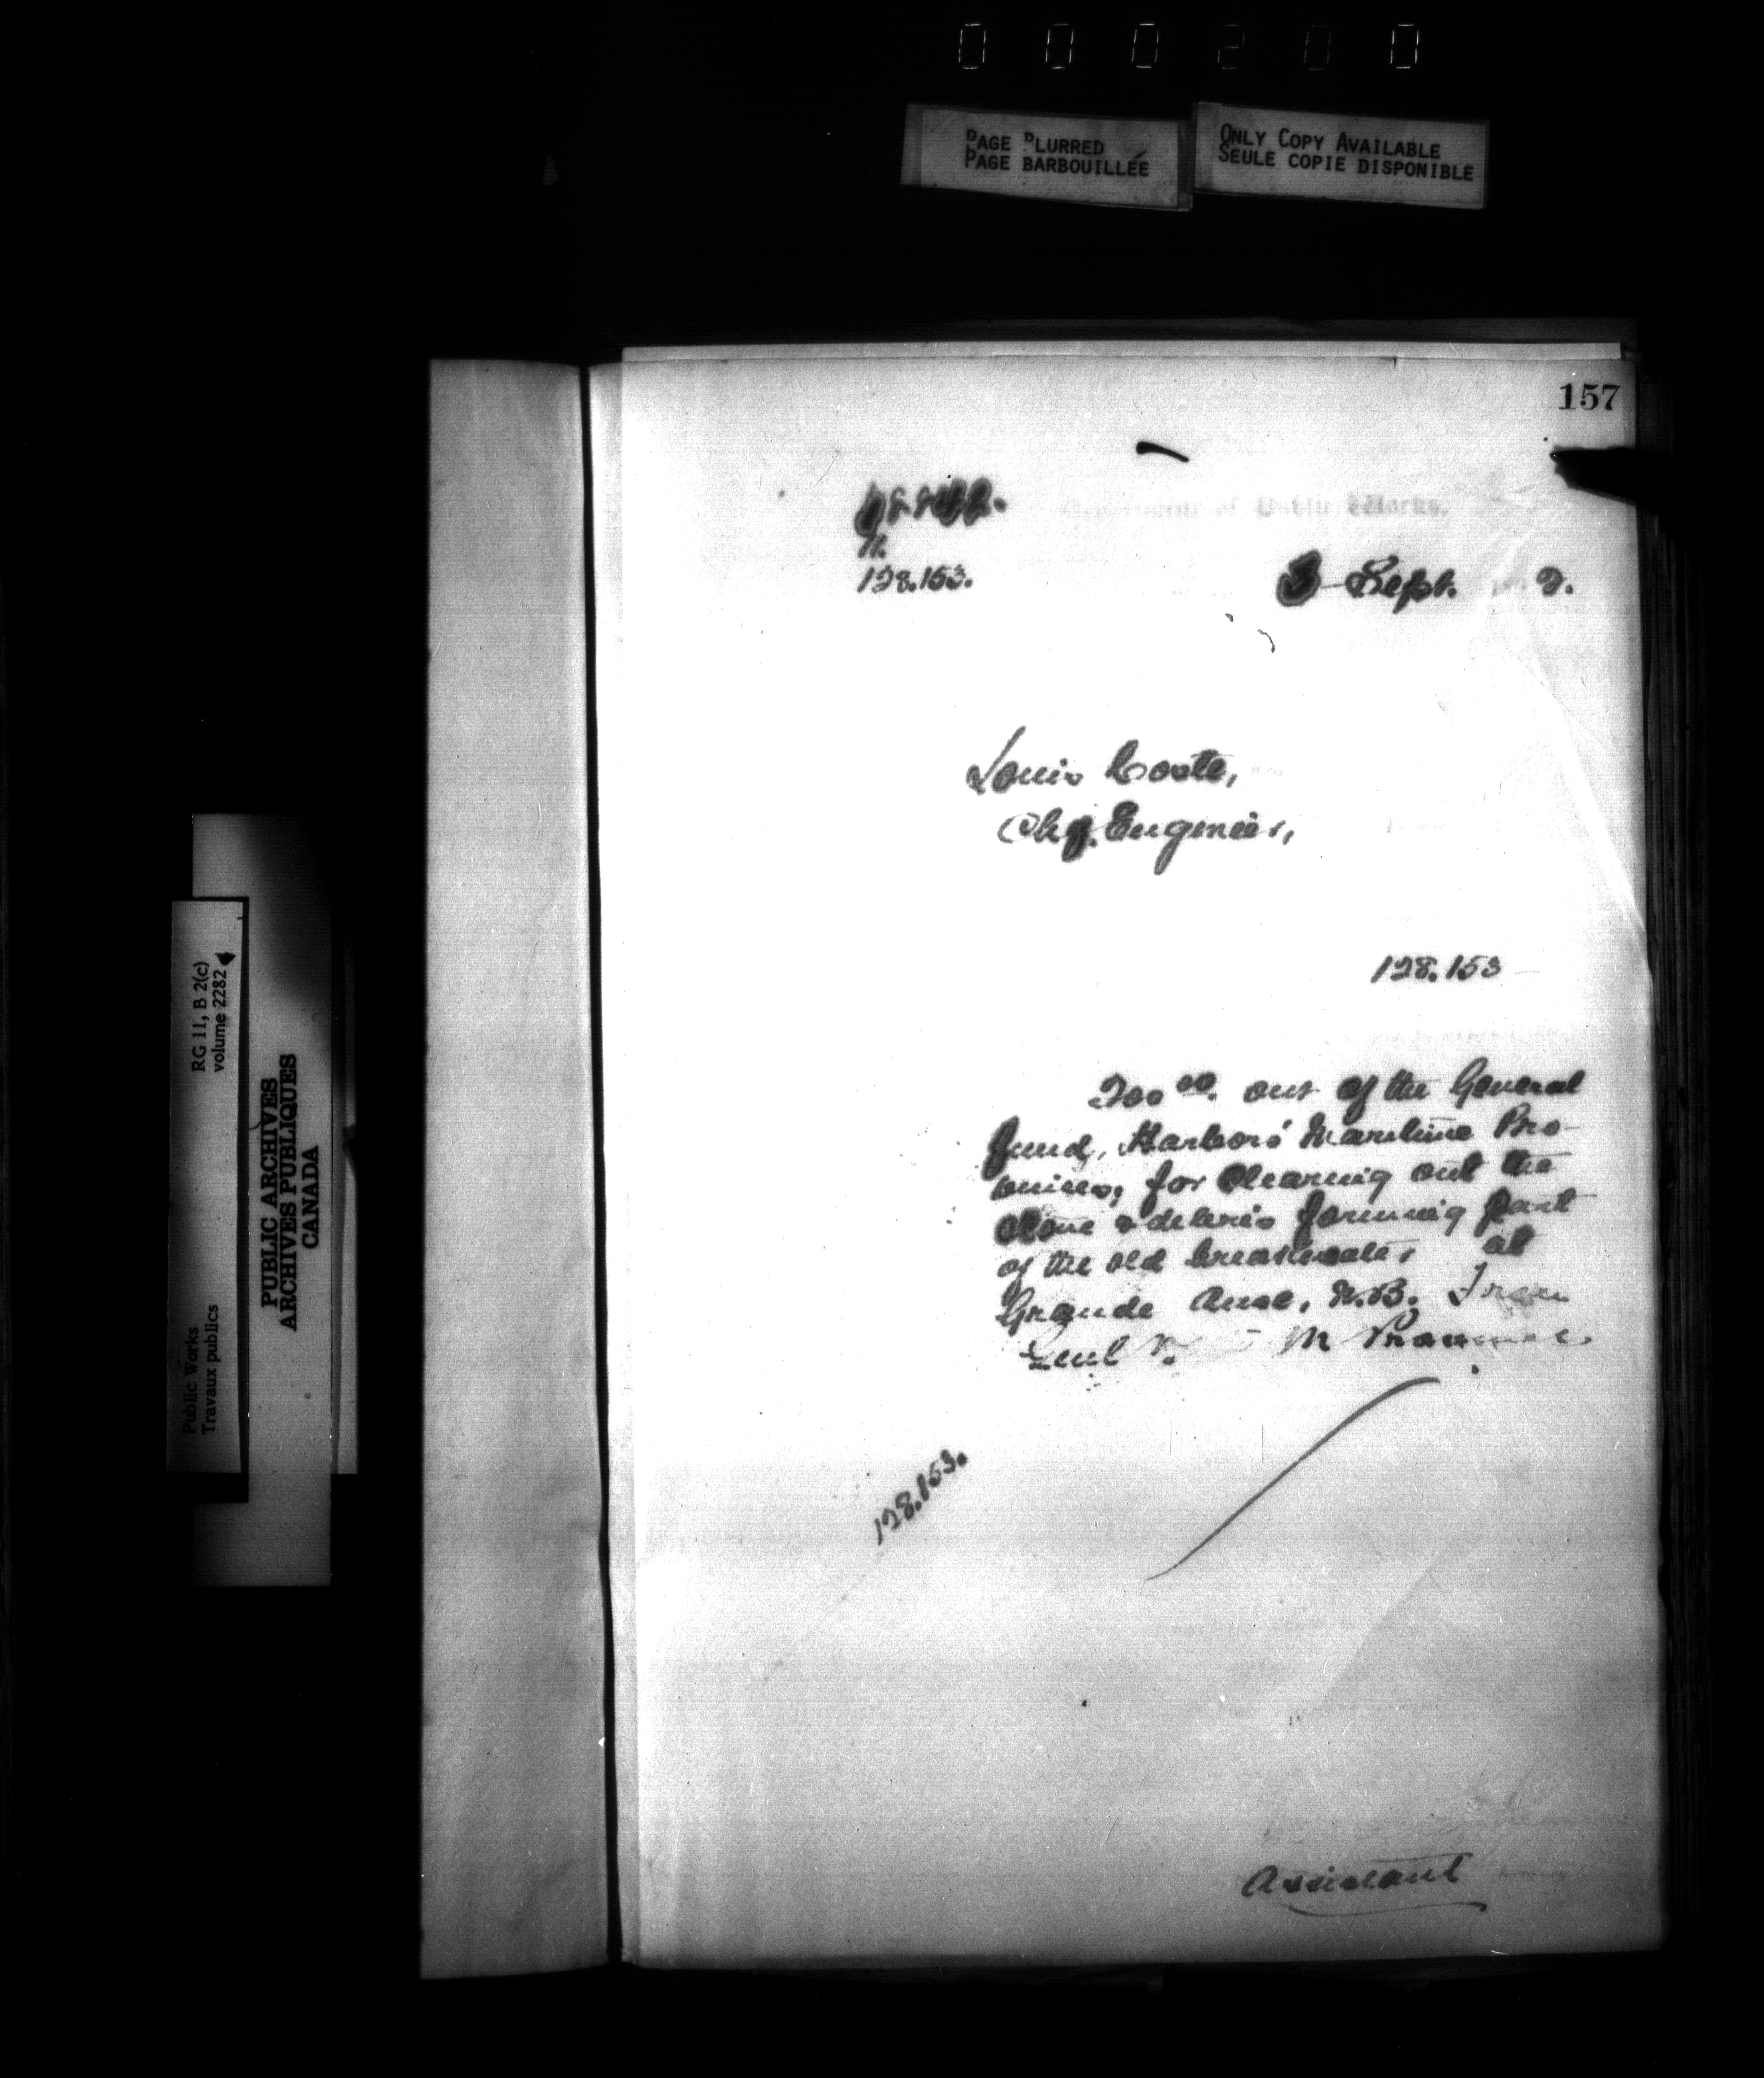 0 0 0 2 0 0
PAGE BLURRED
PAGE BARBOUILLÉE
ONLY COPY AVAILABLE
SEULE COPIE DISPONIBLE
157
Department of Public Works.
128.153.
3 Sept. 2.
Louis Coste,
Chf. Engineer,
128.153
200 00. out of the General
fund, Harbors' Maritime Pro-
vinces, for clearing out the
stone & debris forming part
of the old breakwater at
Grande Anse, N.B. From
M
128.153.
Assistant
RG 11, B 2(c)
volume 2282
Public Works
Travaux publics
PUBLIC ARCHIVES
ARCHIVES PUBLIQUES
CANADA